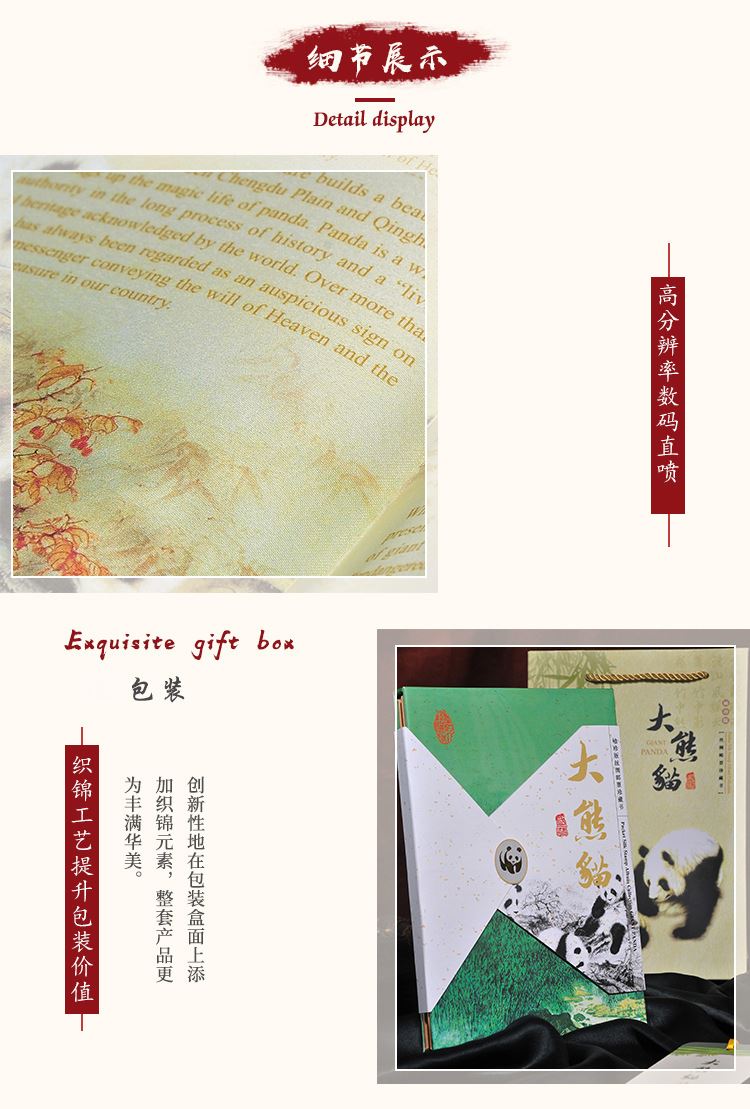 细节展示
Detail display
builds a
Chengdu Plain and
up the magic life of panda. Panda is a
authority in the long process of history and a "liv
heritage acknowledged by the world. Over more tha
has always been regarded as an auspicious sign on
messenger conveying the will of Heaven and the
easure in our country.
of giant
高分辨率数码直喷
Exquisite gift box
包装
织锦工艺提升包装价值
创新性地在包装盒面上添
加织锦元素，整套产品更
为丰满华美。
大熊貓
大熊貓
GIANT
PANDA
大熊